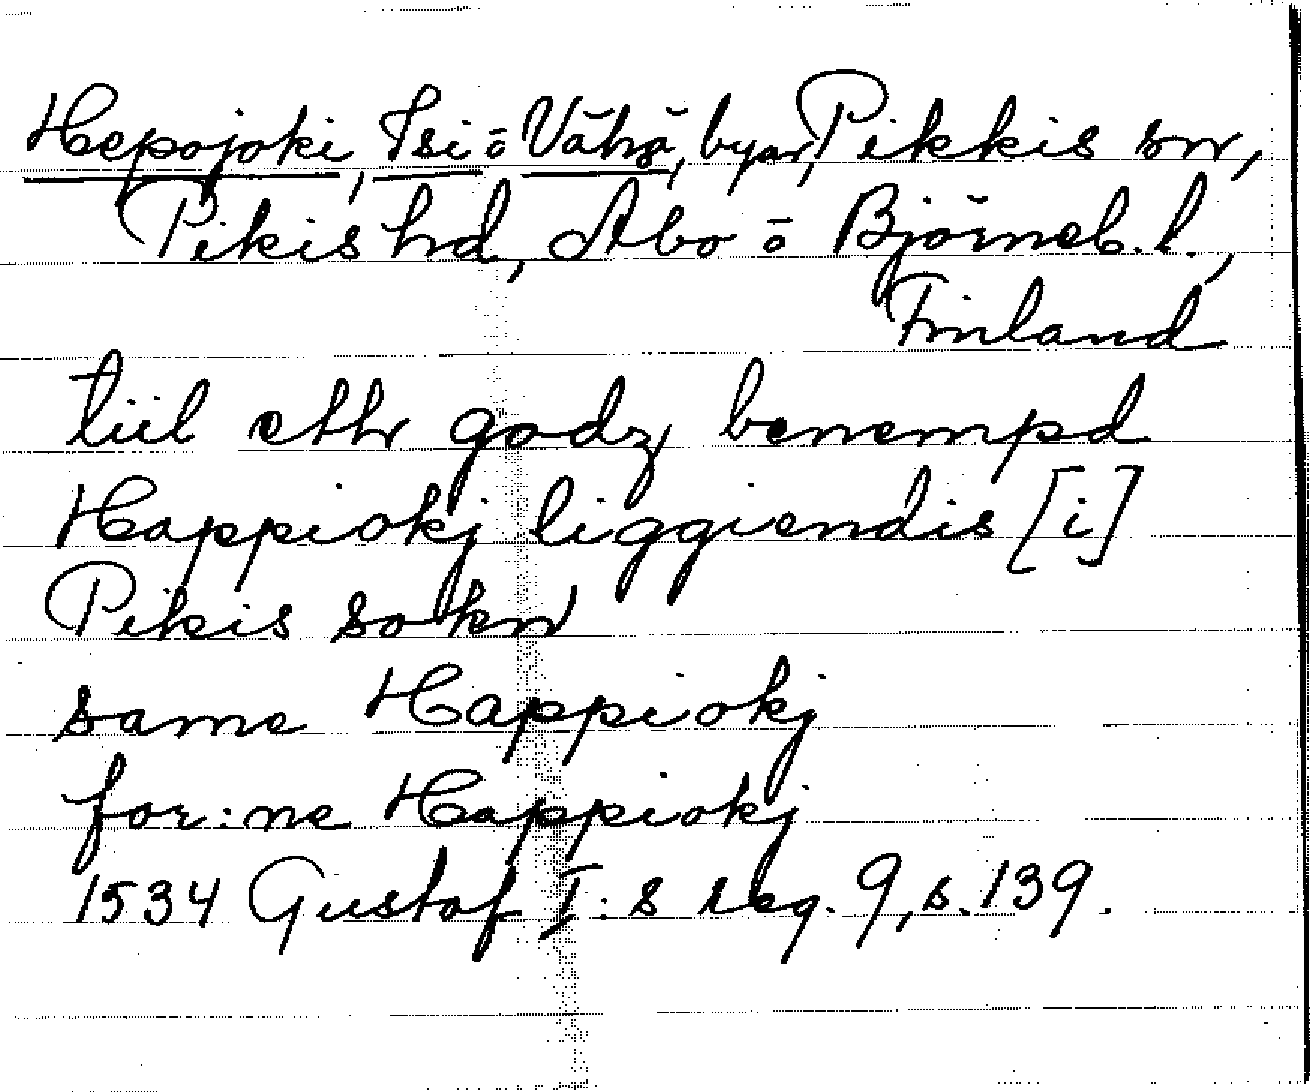 Hepojoki, Isi o Vähä, byar, Pikkis sn,
Pikis hd, Åbo o Björneb. l.,
Finland
tiil ehtr godz benempd
Happiokj liggiendis [i]
Pikis sokn
same Happiokj
for:ne Happiokj
1534 Gustaf I:s reg. 9, s. 139.